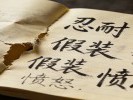 忍耐
假装
假装 愤
愤怒.